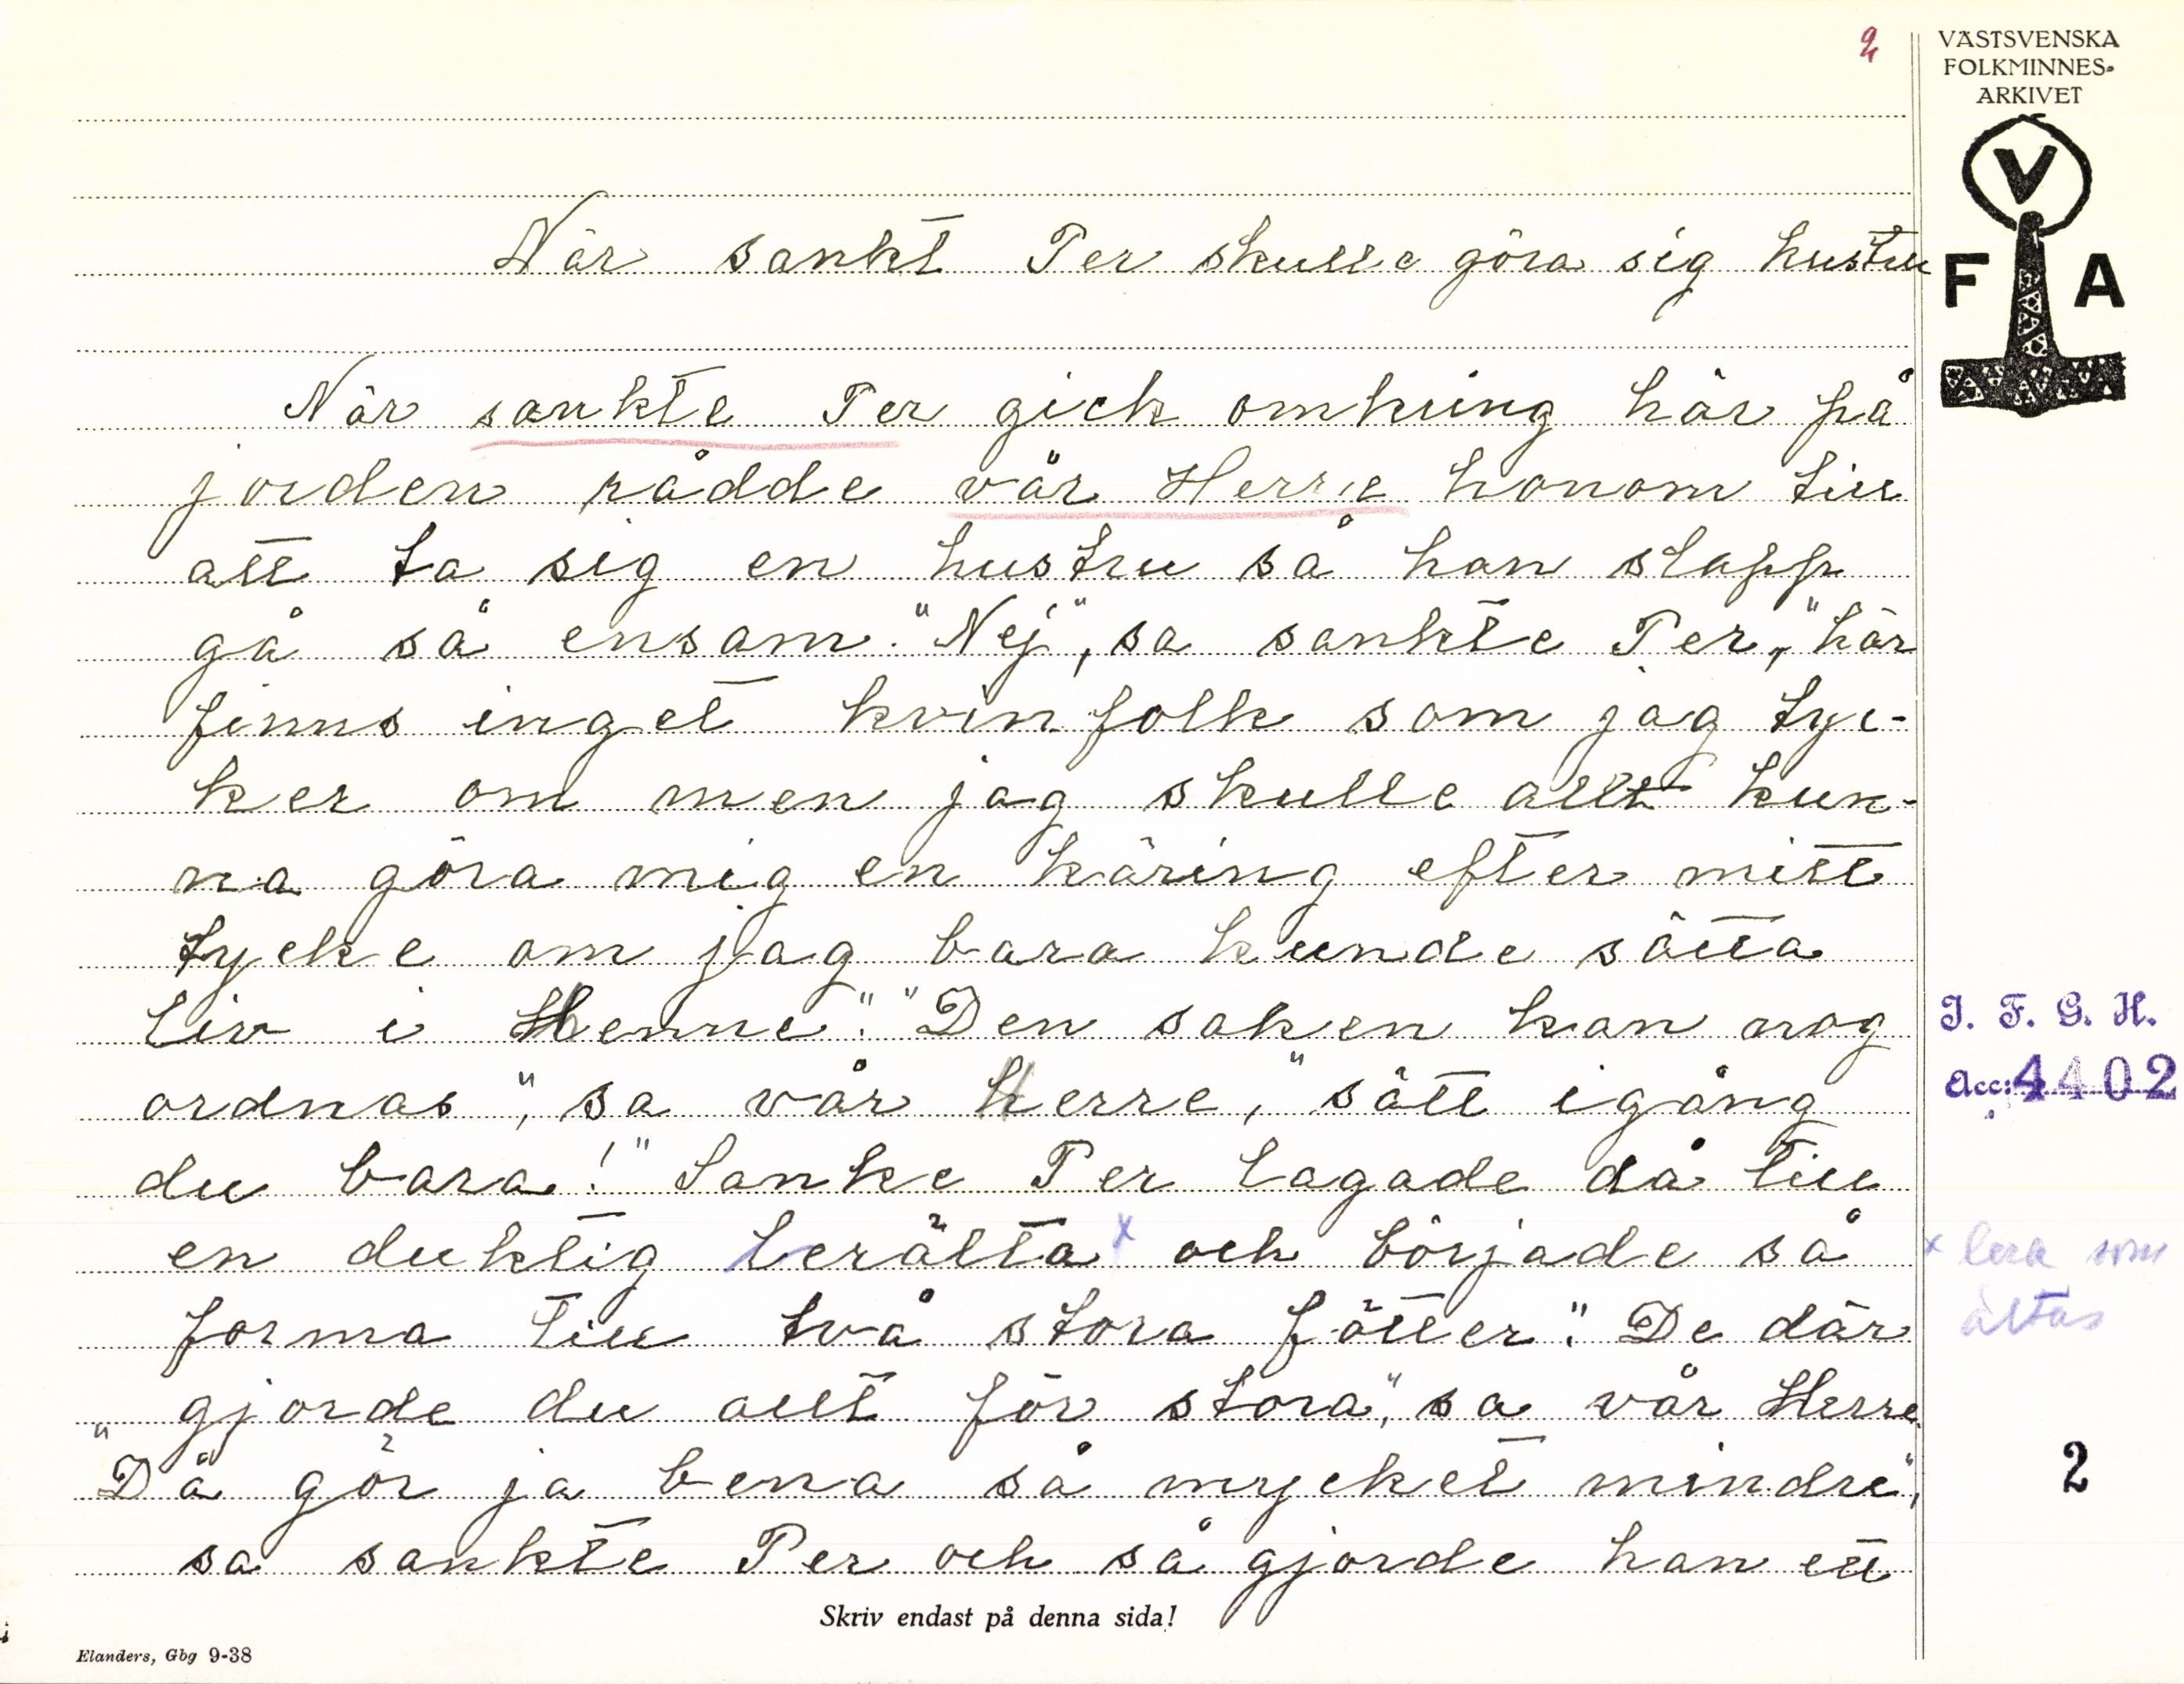 2
VÄSTSVENSKA
FOLKMINNES-
ARKIVET
V
F A
När sankt Per skulle göra sig hustru
När sankte Per gick omkring här på
jorden rådde vår Herre honom till
att ta sig en hustru så han slapp
gå så ensam. "Nej", sa sankte Per, "här
finns inget kvinfolk som jag tyc-
ker om men jag skulle allt kun-
na göra mig en käring efter mitt
tycke om jag bara kunde sätta
liv i Henne". "Den saken kan nog
ordnas", sa vår Herre, "sätt igång
du bara!" Sanke Per lagade då till
en duktig lerälta x och började så
forma till två stora fötter. "De där
gjorde du allt för stora", sa vår Herre.
"Då gör ja bena så mycket mindre",
sa sankte Per och så gjorde han ett
I. F. G. H.
Acc: 4402
x lera som
ältas
2
Skriv endast på denna sida!
Elanders, Gbg 9-38